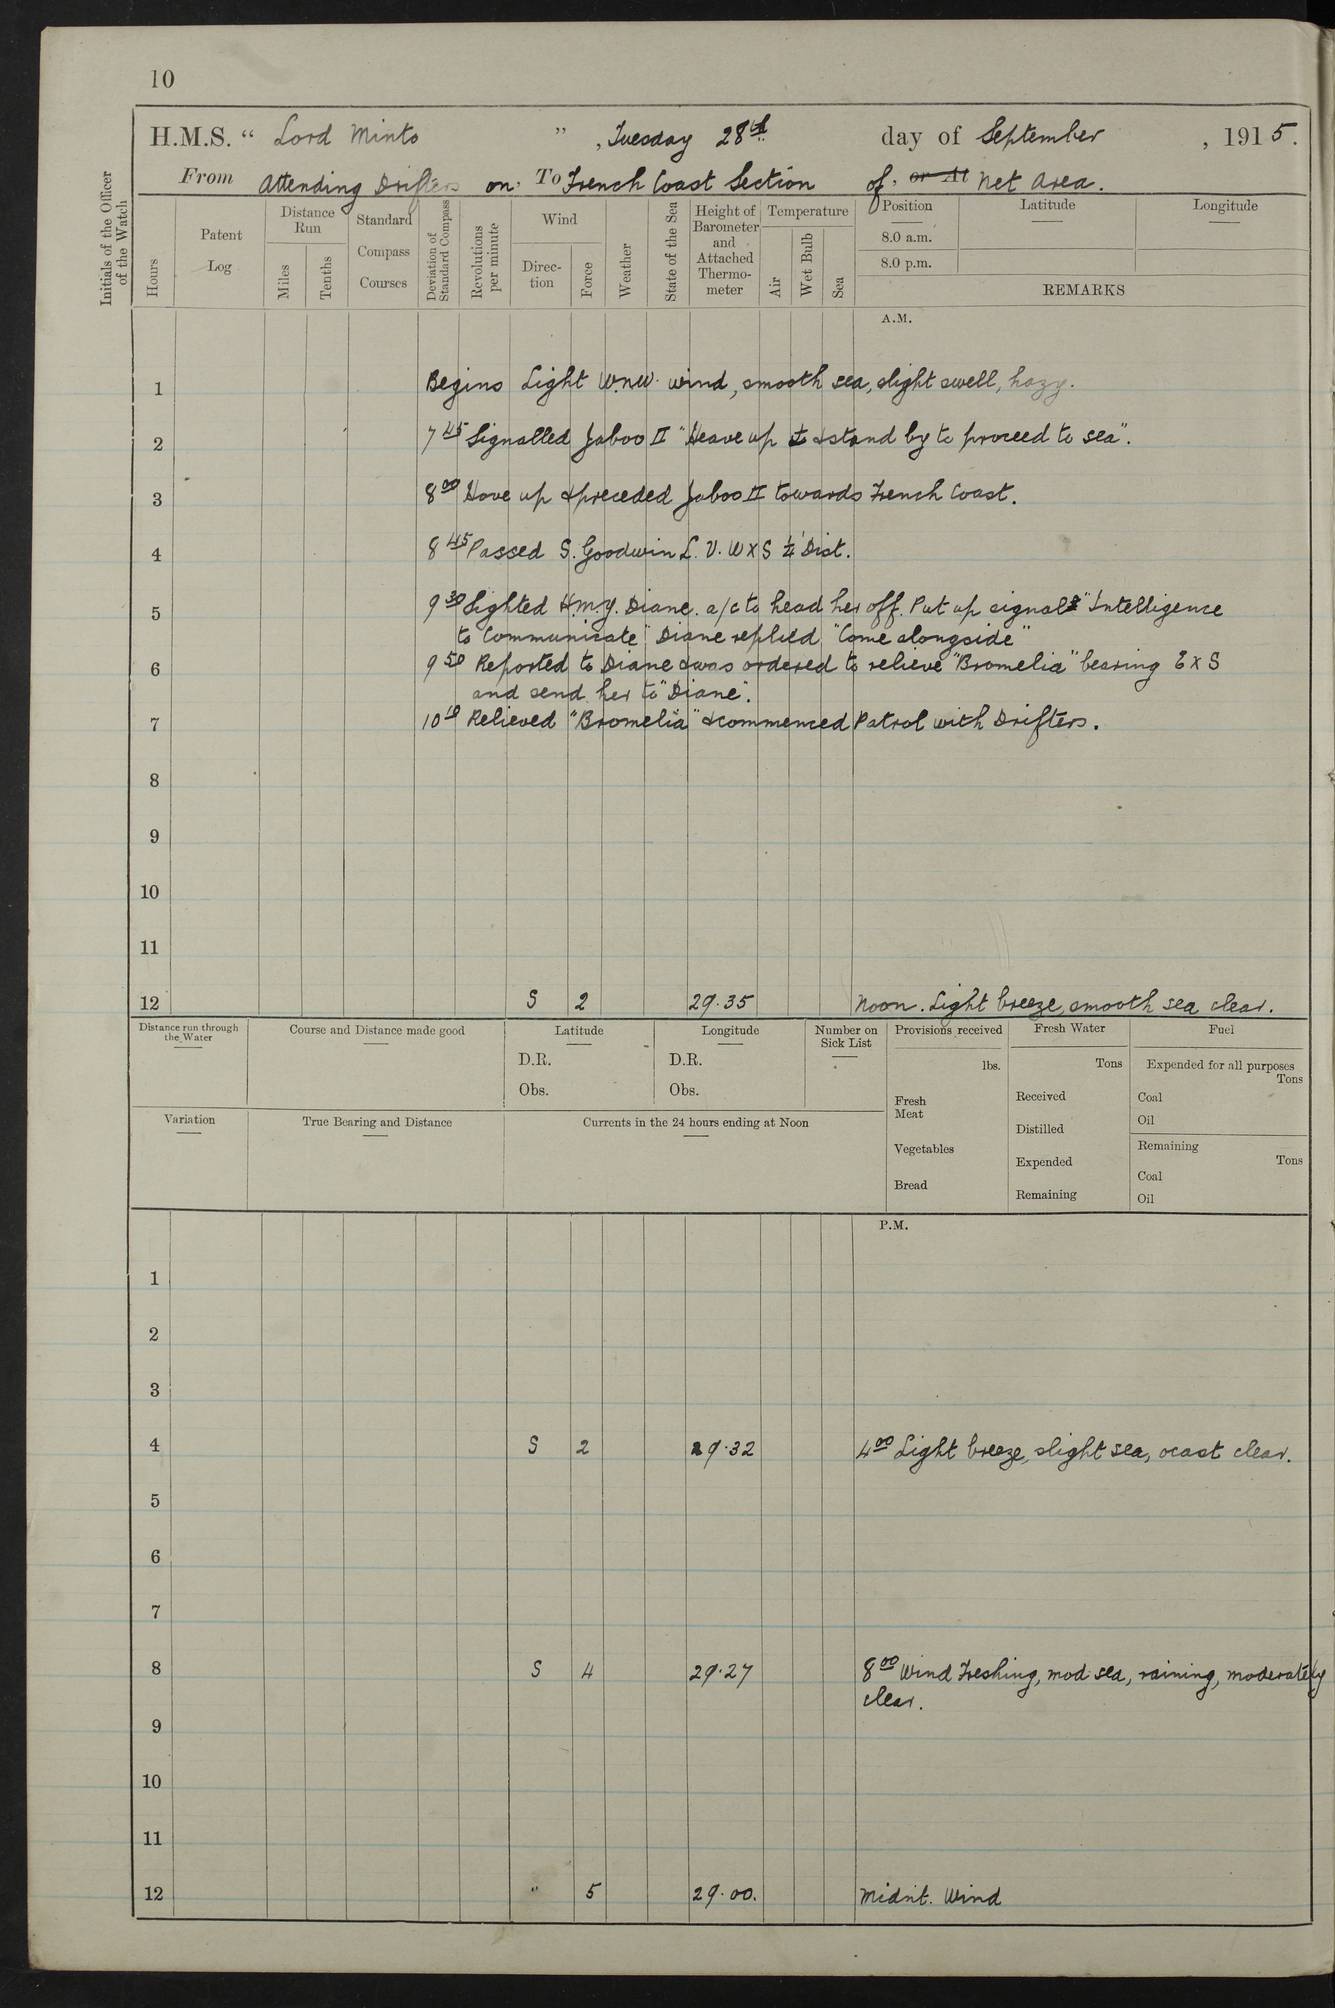 10
H.M.S. “ Lord Minto ”, Tuesday 28th day of September, 1915.
From Attending Drifters on, To French Coast Section of, or At Net Area.
Initials of the Officer of the Watch
Hours
Patent Log
Distance Run
Miles
Tenths
Standard Compass Courses
Deviation of Standard Compass
Revolutions per minute
Wind
Direc-tion
Force
Weather
State of the Sea
Height of Barometer and Attached Thermo-meter
Temperature
Air
Wet Bulb
Sea
Position
8.0 a.m.
8.0 p.m.
Latitude
Longitude
REMARKS
A.M.
1 Begins Light W.N.W. wind, smooth sea, slight swell, hazy.
2 7 45 Signalled Jaboo II "Heave up ⚓ & stand by to proceed to sea".
3 8 00 Hove up & preceded Jaboo II towards French Coast.
4 8 45 Passed S. Goodwin L. V. W x S ¼' Dist.
5 9 30 Sighted H.M.Y. Diane. a/c to head her off. Put up signal "Intelligence
to Communicate" Diane replied "Come alongside"
6 9 50 Reported to Diane & was ordered to relieve "Bromelia" bearing E x S
and send her to "Diane".
7 10 10 Relieved "Bromelia" & commenced Patrol with Drifters.
8
9
10
11
12 S 2 29.35 Noon. Light breeze, smooth sea clear.
Distance run through the Water
Course and Distance made good
Latitude
D.R.
Obs.
Longitude
D.R.
Obs.
Number on Sick List
Provisions received
lbs.
Fresh Meat
Vegetables
Bread
Fresh Water
Tons
Received
Distilled
Expended
Remaining
Fuel
Expended for all purposes
Tons
Coal
Oil
Remaining
Tons
Coal
Oil
Variation
True Bearing and Distance
Currents in the 24 hours ending at Noon
P.M.
1
2
3
4 S 2 29.32 4 00 Light breeze, slight sea, ocast clear.
5
6
7
8 S 4 29.27 8 00 Wind Freshing, mod. sea, raining, moderately
clear.
9
10
11
12 " 5 29.00. Midnt. Wind